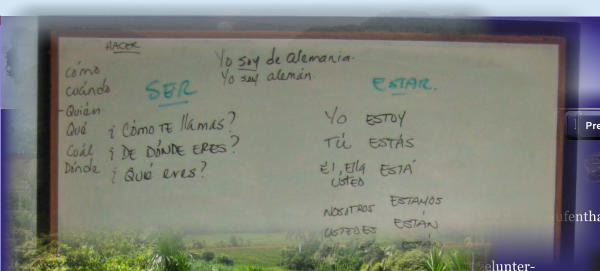 HACER
Yo soy de Alemania.
Yo soy alemán.
Cómo
Cuándo
Quién
Qué
Cuál
Dónde
SER
¿Cómo TE llamas?
¿DE DÓNDE ERES?
¿Qué eres?
ESTAR.
Yo ESTOY
TÚ ESTÁS
Él, Ella ESTÁ
USTED
NOSOTROS ESTAMOS
USTEDES ESTÁN
Pre
ufentha
elunter-